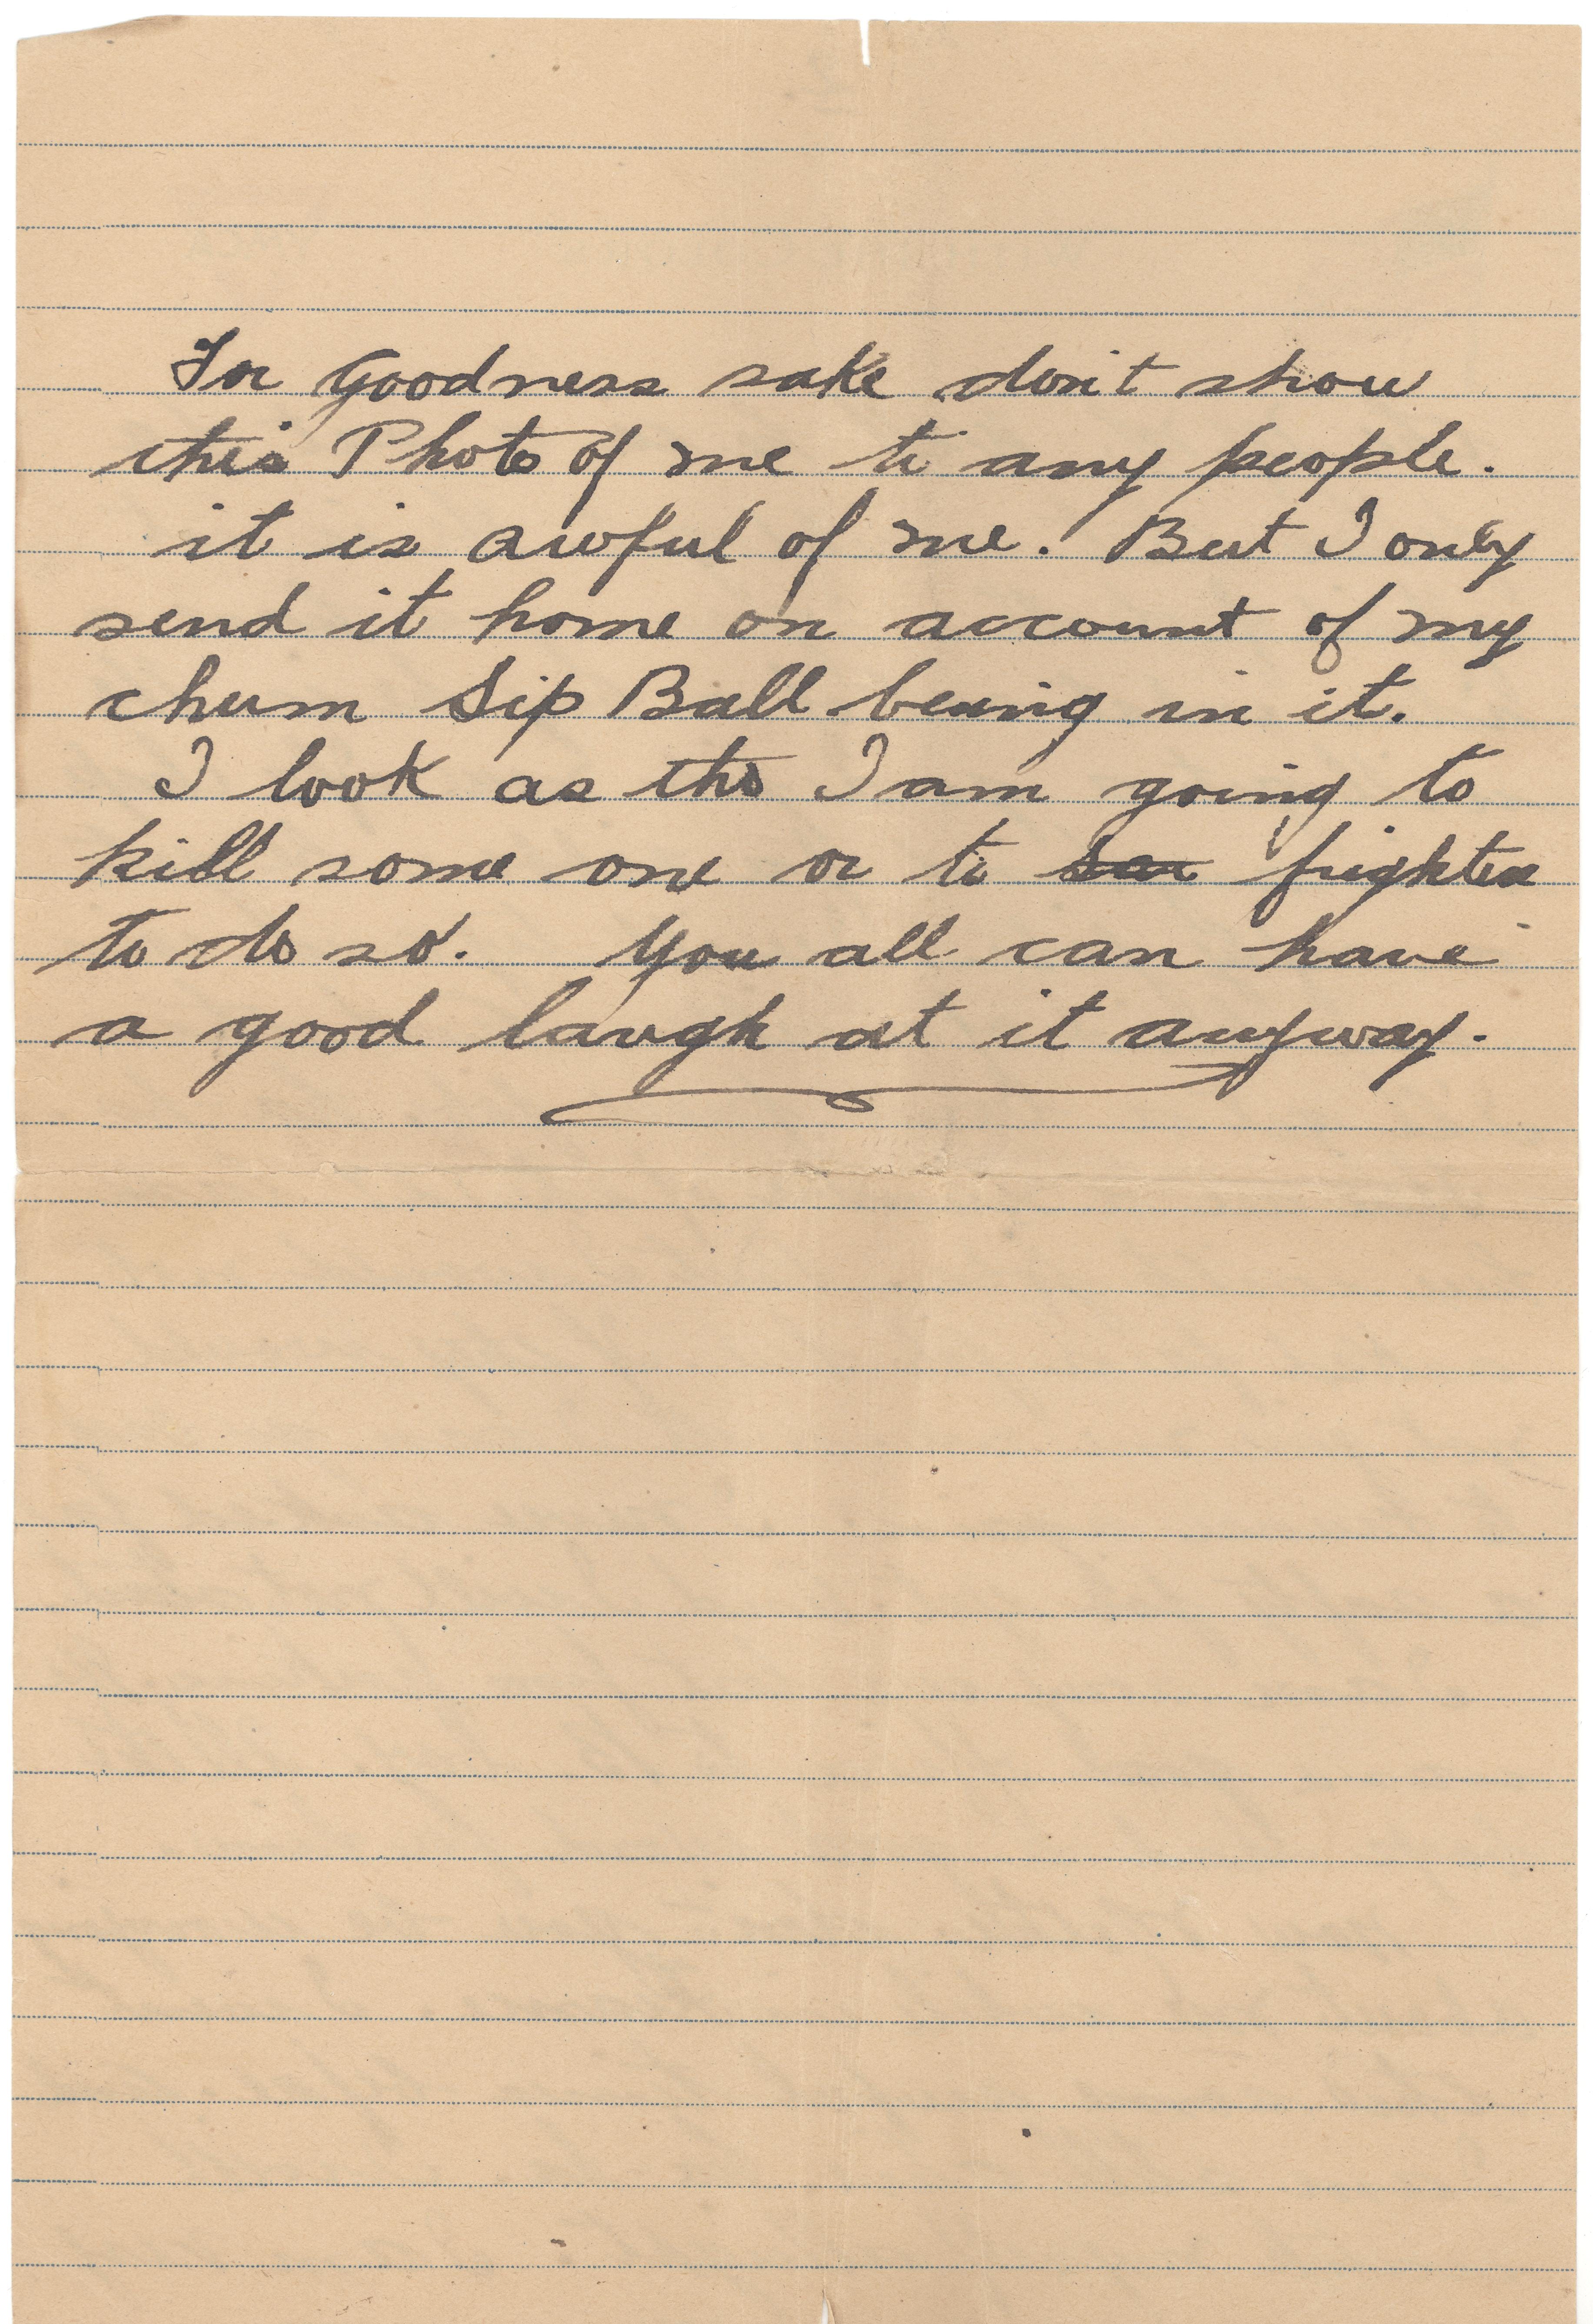 For goodness sake don't show
this Photo of me to any people.
it is awful of me. But I only
send it home on account of my
chum Sip Ball being in it.
I look as tho I am going to
kill some one or to frighten
to do so. You all can have
a good laugh at it anyway.